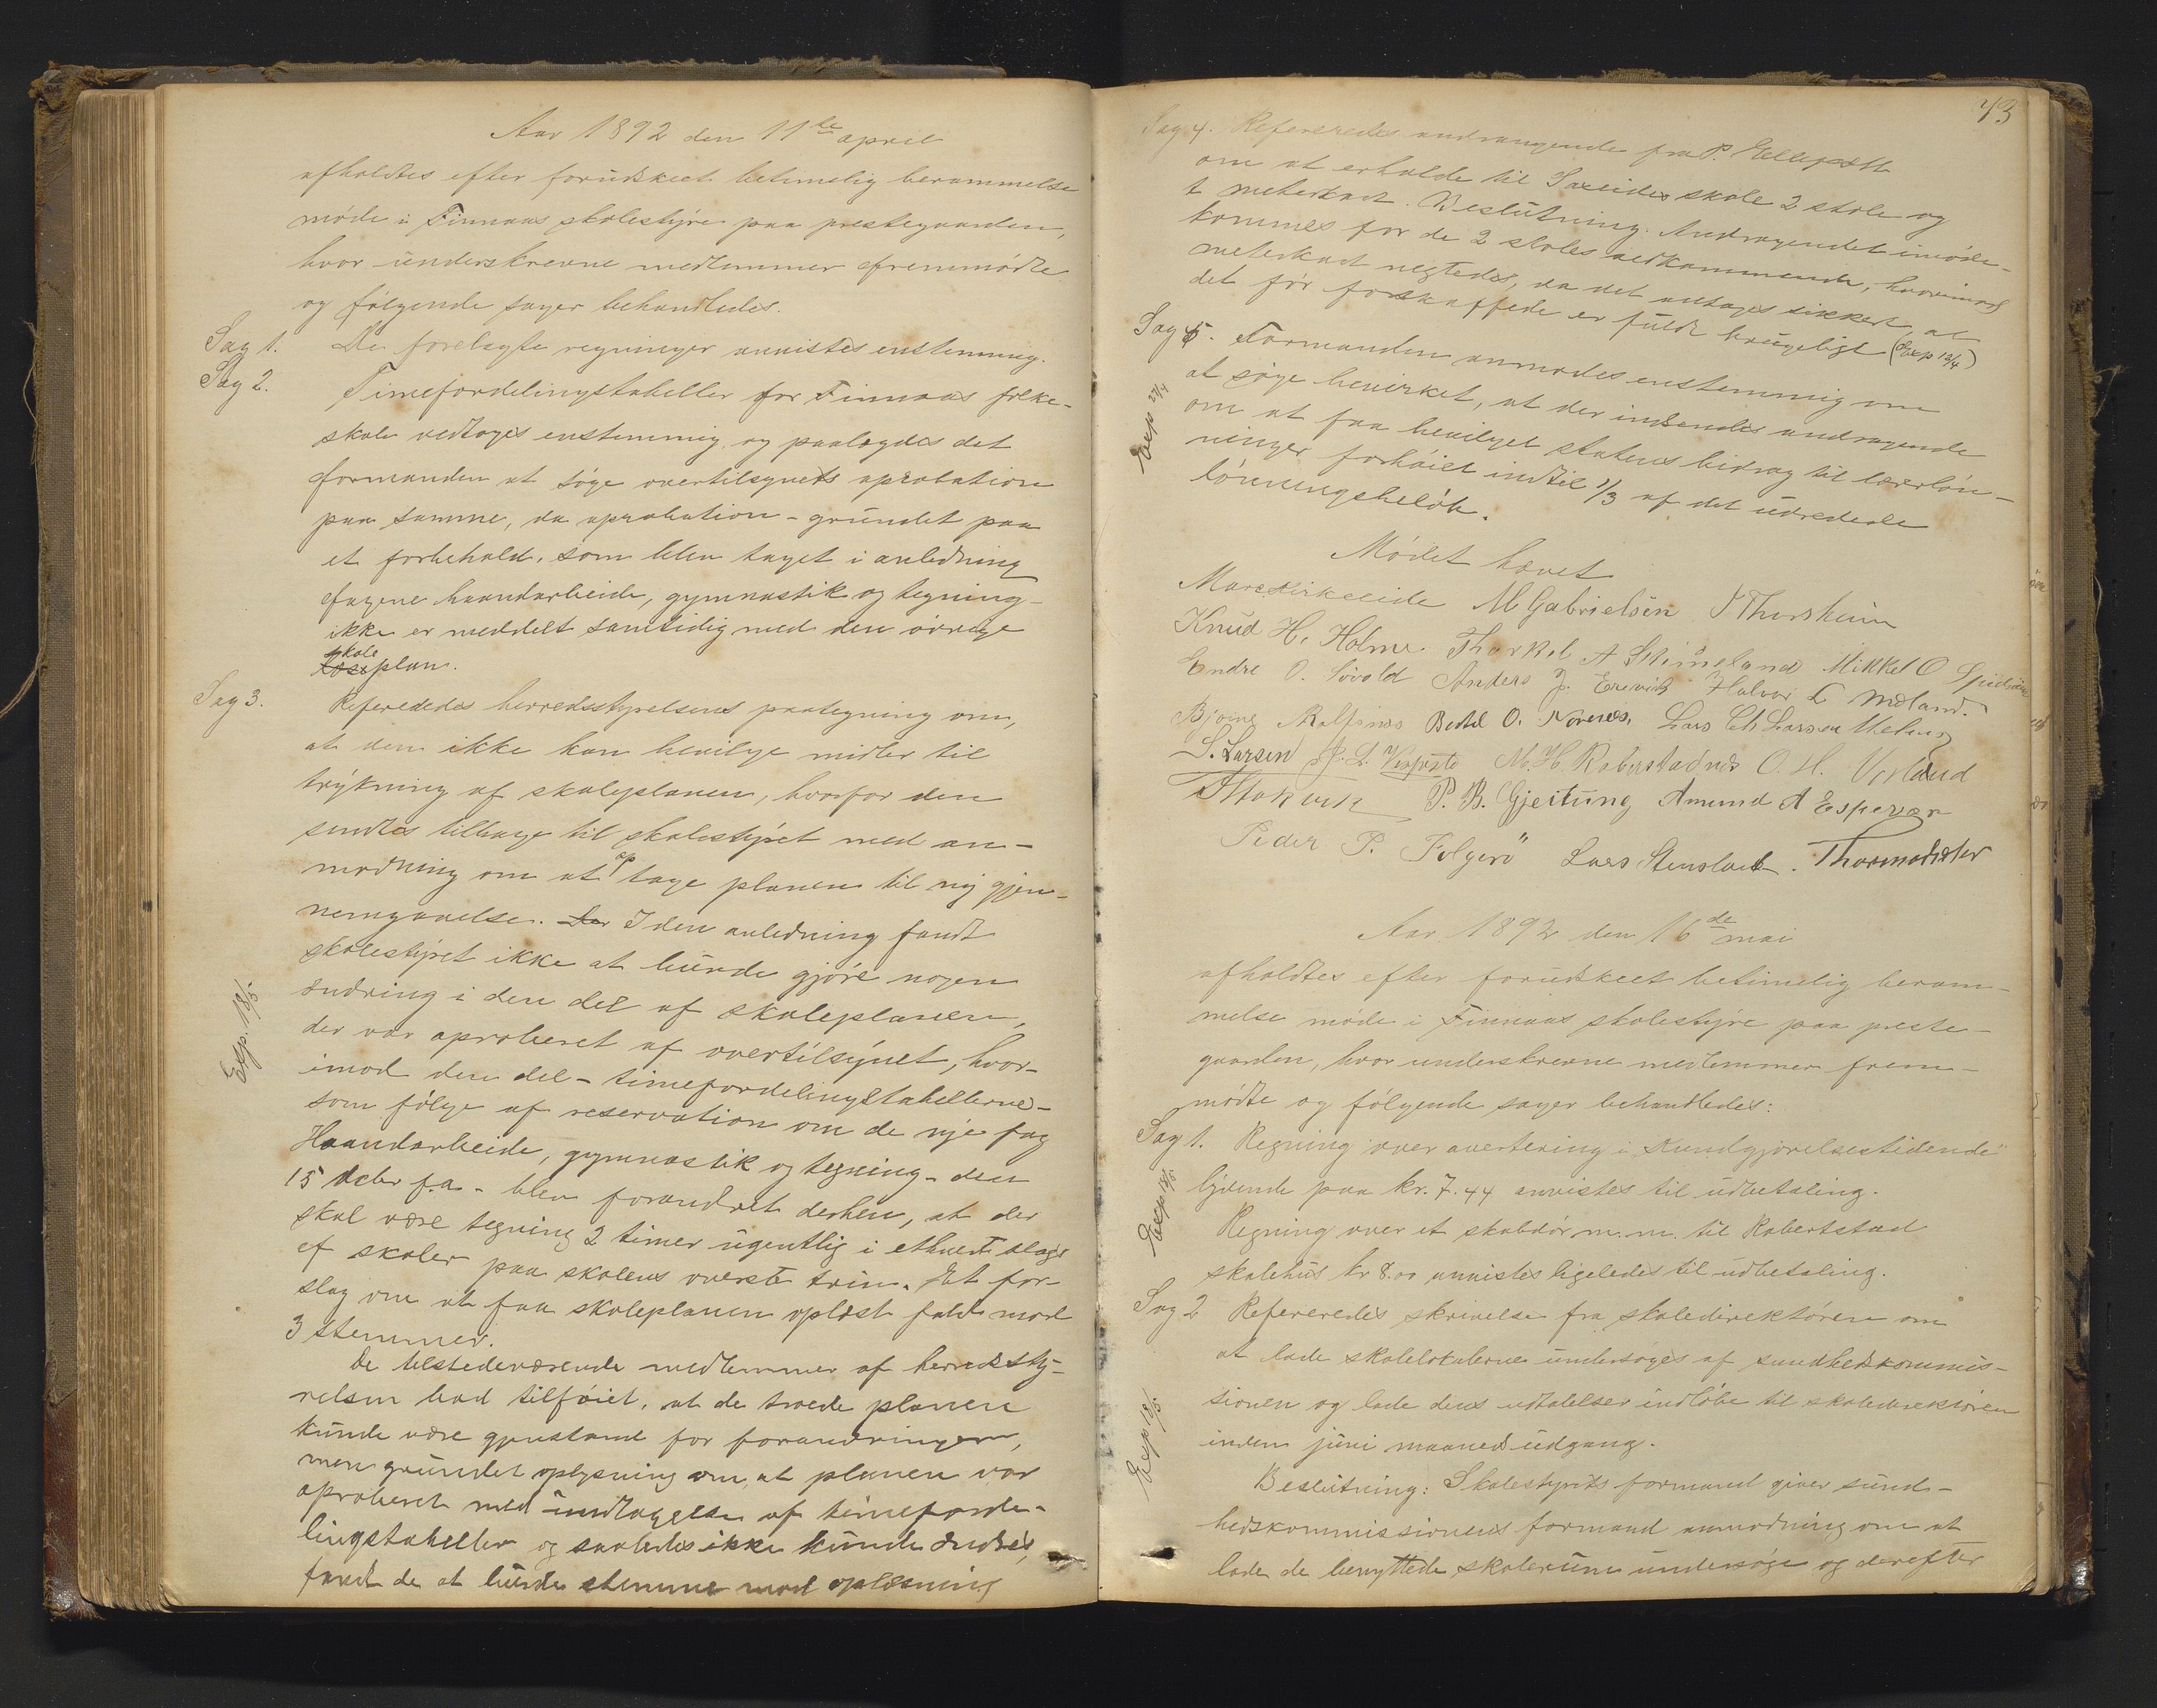 Aar 1892 den 11te april
afholdtes efter forudskeet betimelig berammelse
møde i Finnaas skolestyre paa prestegaarden,
hvor underskrevne medlemmer fremmødte
og følgende sager behandledes.
Sag 1. De forelagte regninger anvistes enstemmig.
Sag 2. Timefordelingstabeller for Finnaas folke-
skole vedtoges enstemmig og paalagdes det
formanden at søge overtilsynets aprobation
paa samme, da aprobation - grundet paa
et forbehold, som blev taget i anledning
fagene haandarbeide, gymnastik og tegning -
ikke er meddelt samtidig med den øvrige
skole
læseplan.
Sag 3. Refereredes herredsstyrelsens paategning om,
at den ikke kan bevilge midler til
trykning af skoleplanen, hvorfor den
sendtes tilbage til skolestyret med an-
modning om at optage planen til ny gjen-
nemgaaelse. Der I den anledning fandt
skolestyret ikke at burde gjøre nogen
ændring i den del af skoleplanen,
der var aproberet af overtilsynet, hvor-
Exp. 18/5
imod den del - timefordelingstabellerne -
som følge af reservation om de nye fag
Haandarbeide, gymnastik og tegning - den
15 dcbr f.a. - blev forandret derhen, at der
skal være tegning 2 timer ugentlig i ethvert slags
af skoler paa skolens øverste trin. Et for-
slag om at faa skoleplanen oplæst faldt mod
3 stemmer.
De tilstedeværende medlemmer af herredssty-
relsen bad tilføiet, at de troede planen
kunde være gjenstand for forandringer,
men grundet oplysning om, at planen var
aproberet med undtagelse af timeforde-
lingstabeller og saaledes ikke kunde ændres,
fandt de at burde stemme mod oplæsning
73
Sag 4. Refereredes andragende fra P.
om at erholde til Sæleides skole 2 stole og
1 meterkart. Beslutning: Andragendet imøde-
kommes for de 2 stoles vedkommende, hvorimod
meterkart negtedes, da det antages sikkert, at
det før forskaffede er fuldt brugeligt (Exp 12/4)
Sag 5. Formanden anmodes enstemmig om
Exp 27/4
at søge bevirket, at der indsendes andragende
om at faa bevilget statens bidrag til lærerløn-
ninger forhøiet indtil 1/3 af det udredede
lønningsbeløb.
Mødet hævet
Mareus Birkeeide M Gabrielsen J Thorsheim
Knud H. Holme. Thorkel A Stimeland Mikkel O
Endre O. Søvold Anders J. Halvor L Mæland.
Bjoine Bertel O. Nørenes. Lars Ch Larsen Meling
S. Larsen M. H. Roberstadnes O. H. Vorland
P. B. Gjeitung Amund A Espevær
Peder P. Folgerö Lars Stensland. Thormodsæter
Aar 1892 den 16de mai
afholdtes efter forudskeet betimelig beram-
melse møde i Finnaas skolestyre paa preste-
gaarden, hvor underskrevne medlemmer frem-
mødte og følgende sager behandledes:
Sag 1. Regning over avertering i „Kundgjørelsestidende"
Exp 18/5
lydende paa kr. 7.44 anvistes til udbetaling.
Regning over et skabdør m.m. til Robertstad
skolehus kr 8.00 anvistes ligeledes til udbetaling.
Sag 2 Refereredes skrivelse fra skoledirektøren om
at lade skolelokalerne undersøges af sundhedskommis-
sionen og lade dens udtalelser indløbe til skoledirektøren
Exp 18/5.
inden juni maaneds udgang.
Beslutning: Skolestyrets formand giver sund-
hedskommissionens formand anmodning om at
lade de benyttede skolerum undersøge og derefter